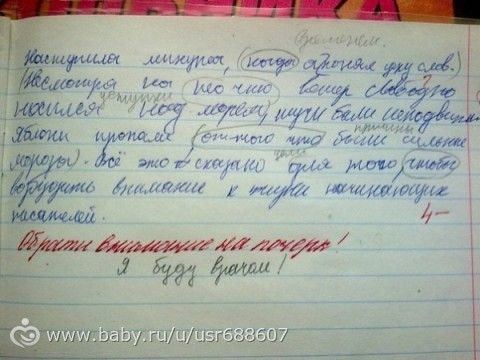 временем.
Наступила минута, (когда я понял цену слов.)
(Несмотря на то что) ветер свободно
уступки
носился над морем, тучи были неподвижны.
причины
Яблони пропали (оттого что) были сильные
цели
морозы). Всё это сказано для того (чтобы)
возбудить внимание к жизни начинающих
писателей.
4-
Обрати внимание на почерк!
Я буду врачом!
www.baby.ru/u/usr688607